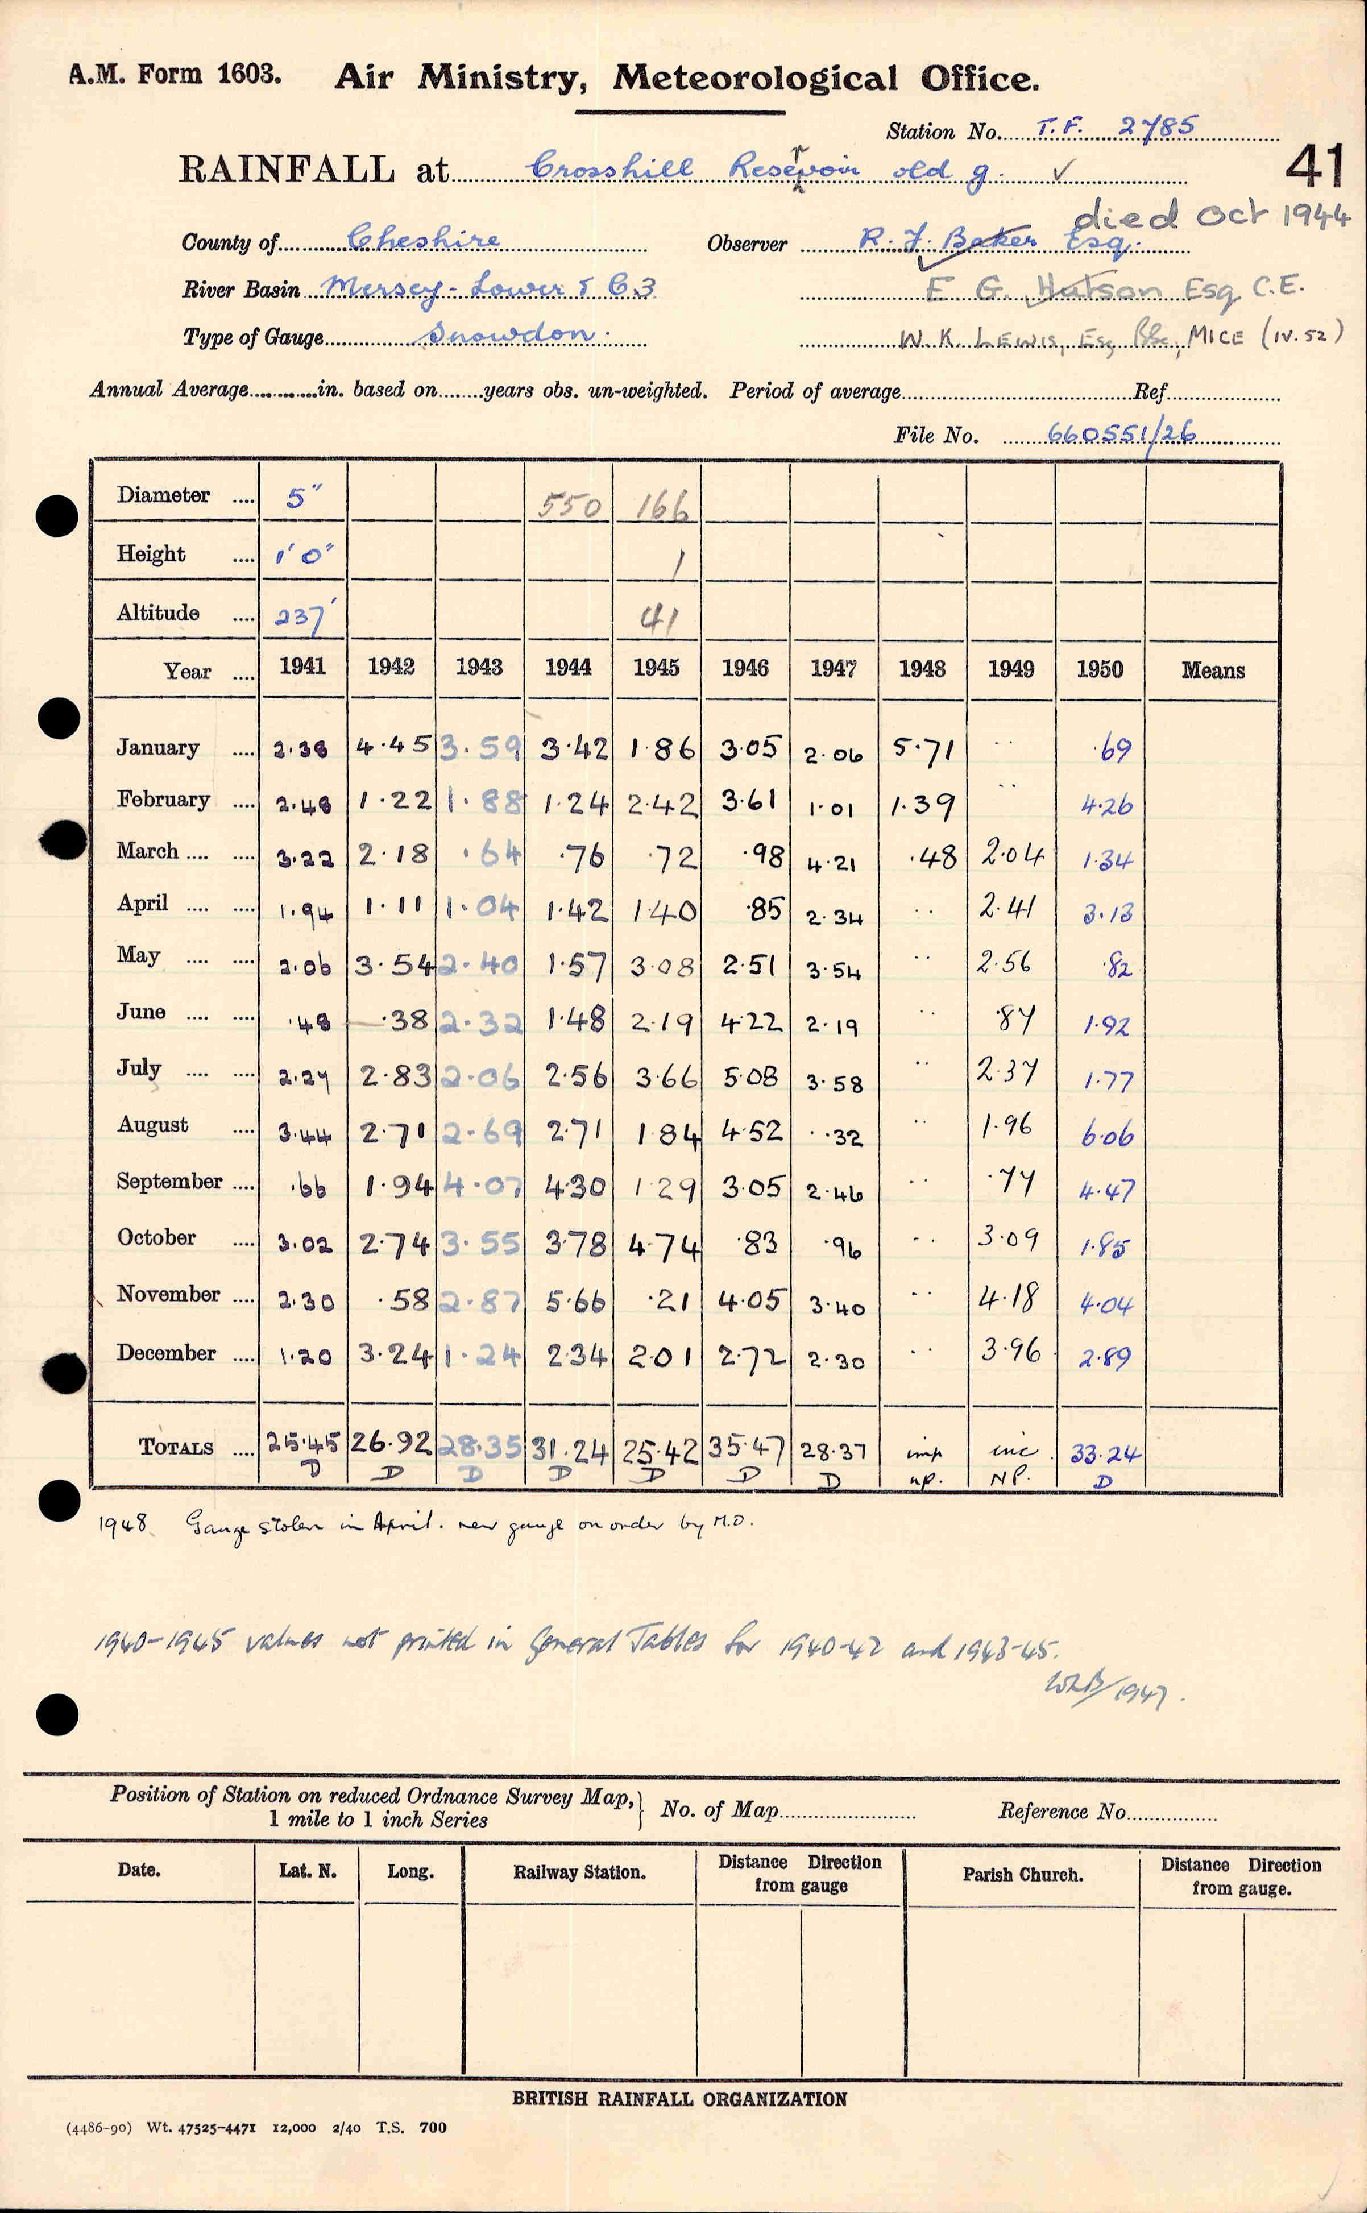 A.M. Form 1603. Air Ministry, Meteorological Office.
Station No. T.F. 2785
RAINFALL at Crosshill Reservoir old g. ✓ 41
died Oct 1944
County of Cheshire Observer R. J. Baker Esq.
River Basin Mersey - Lower & C3 E G. Hatson Esq C.E.
Type of Gauge Snowdon. W. K. LEWIS, Esq BSc, MICE (IV. 52)
Annual Average in. based on years obs. un-weighted. Period of average Ref.
File No. 660551/26
Diameter .... 5" 550 166
Height .... 1' 0" 1
Altitude .... 237' 41
Year .... 1941 1942 1943 1944 1945 1946 1947 1948 1949 1950 Means
January .... 2.38 4.45 3.59 3.42 1.86 3.05 2.06 5.71 .. .69
February .... 2.48 1.22 1.88 1.24 2.42 3.61 1.01 1.39 .. 4.26
March .... .... 3.22 2.18 .64 .76 .72 .98 4.21 .48 2.04 1.34
April .... .... 1.94 1.11 1.04 1.42 1.40 .85 2.34 .. 2.41 3.13
May .... .... 2.06 3.54 2.40 1.57 3.08 2.51 3.54 .. 2.56 .82
June .... .... .48 .38 2.32 1.48 2.19 4.22 2.19 .. .87 1.92
July .... .... 2.27 2.83 2.06 2.56 3.66 5.08 3.58 .. 2.37 1.77
August .... 3.44 2.71 2.69 2.71 1.84 4.52 .32 .. 1.96 6.06
September .... .66 1.94 4.07 4.30 1.29 3.05 2.46 .. .77 4.47
October .... 3.02 2.74 3.55 3.78 4.74 .83 .96 .. 3.09 1.85
November .... 2.30 .58 2.87 5.66 .21 4.05 3.40 .. 4.18 4.04
December .... 1.20 3.24 1.24 2.34 2.01 2.72 2.30 .. 3.96 2.89
TOTALS .... 25.45 26.92 28.35 31.24 25.42 35.47 28.37 imp inc 33.24
D D D D D D D np. NP. D
1948 Gauge stolen in April. new gauge on order by M.O.
1940-1945 values not printed in General Tables for 1940-42 and 1943-45.
WRB/1947.
Position of Station on reduced Ordnance Survey Map, 1 mile to 1 inch Series } No. of Map Reference No.
Date. Lat. N. Long. Railway Station. Distance Direction from gauge Parish Church. Distance Direction from gauge.
BRITISH RAINFALL ORGANIZATION
(4486-90) Wt. 47525-4471 12,000 2/40 T.S. 700